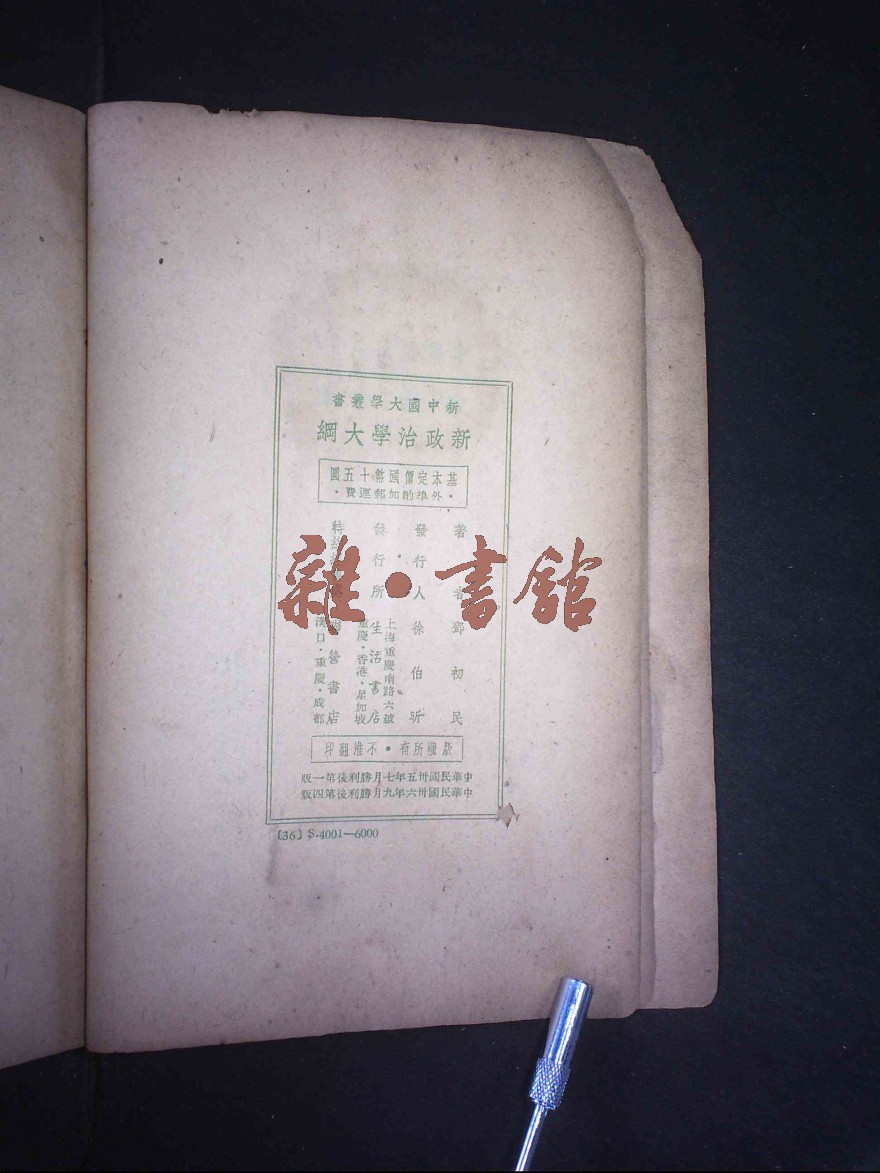 新中國大學叢書
新政治學大綱
基本定價國幣十五圓
·外埠酌加郵運費·
著者 鄧初民
發行人 徐伯昕
發行所 生活書店
上海重慶南路六號
重慶·香港·星加坡
特
營書店
漢口·重慶·成都
版權所有·不准翻印
中華民國卅五年七月勝利後第一版
中華民國卅六年九月勝利後第四版
〔36〕S.4001—6000
雜·書館